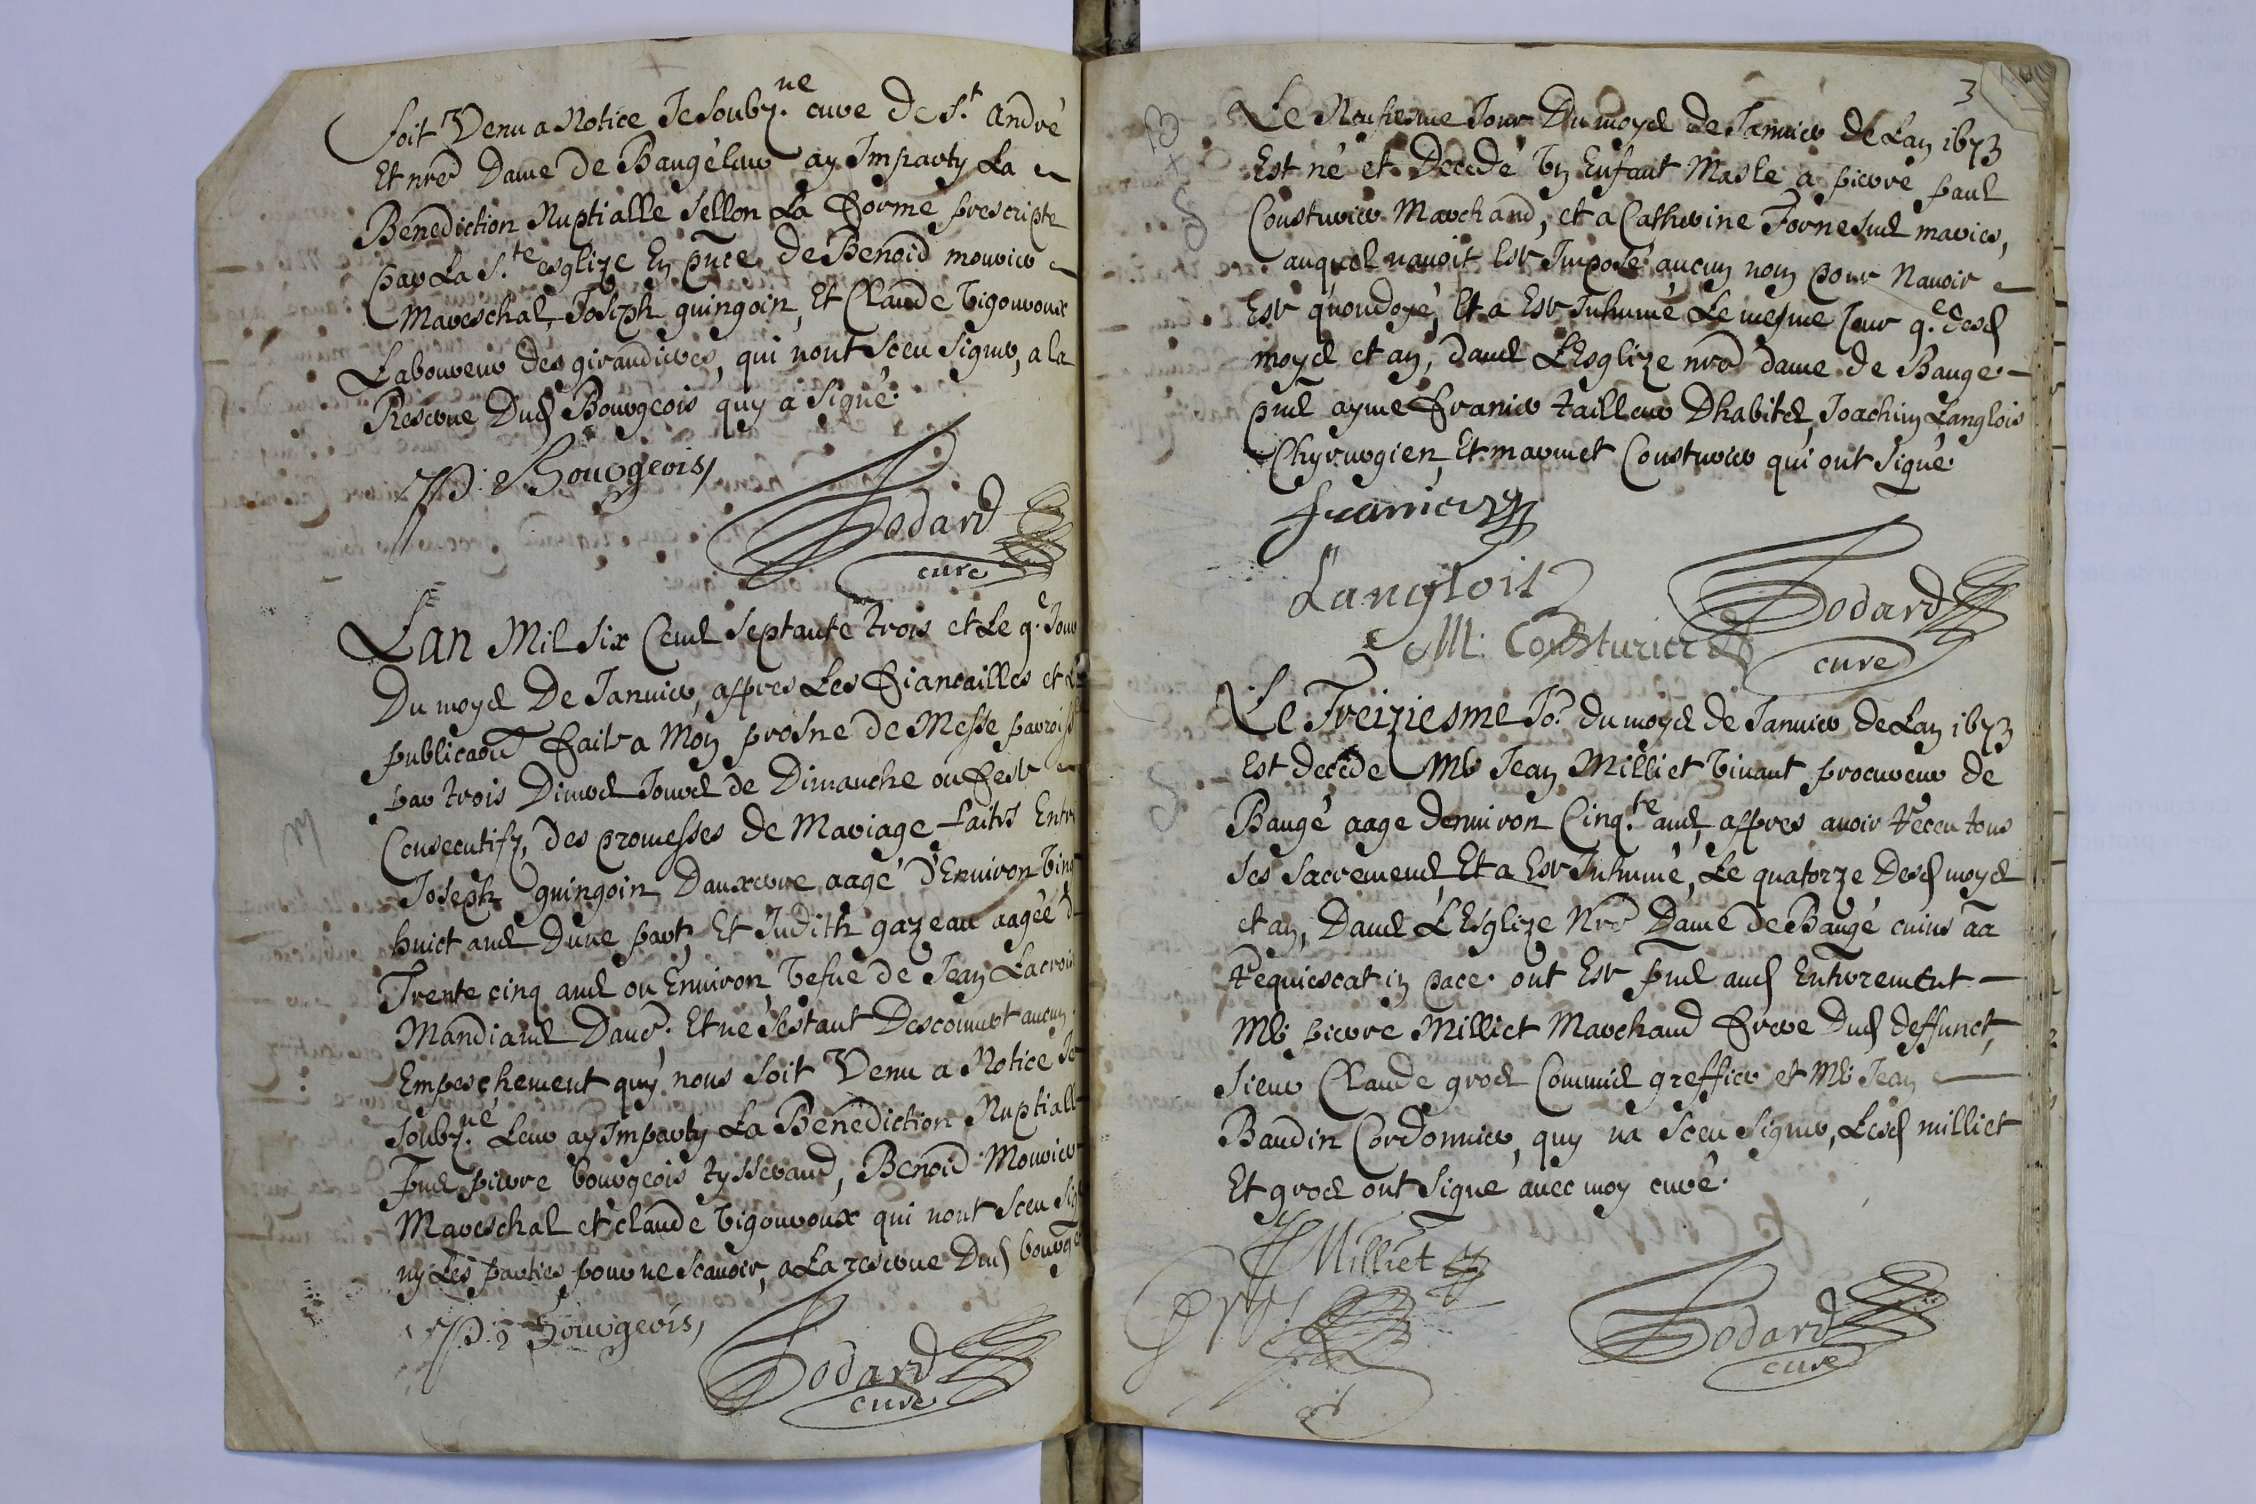 soit Venu a Notice Je soubz.né cure de S.t André
Et nre Dame de Baugé leur ay Imparty La
Benediction Nuptialle sellon La forme prescripte
par La S.te esglize En pnce de Benoid mourier
Mareschal, Joseph guingoin, Et Claude Vigouroux
Laboureur des giraudieres, qui nont sceu signer, a la
Reserve Dud Bourgeois quy a signé.
P: Bourgeois
Dodard
cure
Lan Mil six Cens septante trois et Le q.e Jour
Du moys De Janvier, appres Les fiancailles et
publicaons faits a Mon prosne de Messe
par trois Divers Jours de Dimanche ou feste
Consecutifz, des promesses de Mariage faites Entre
Joseph guingoin Dauxerre aagé d'Environ Vingt
huict ans Dune part, Et Judith gazeau aagée d
Trente cinq ans ou Environ Vefue de Jean Lacroix
Mandians Et ne sestant Descouvert aucun
Empeschement quy nous soit Venu a Notice Je
soubz.né Leur ay Imparty La Benediction Nuptialle
pns pierre bourgeois tysserand, Benoid Mourier
Mareschal et claude Vigouroux qui nont sceu
ny Les parties pour ne scavoir, a La reserve Dud
P: Bourgeois
Dodard
cure
3
B
+
S
Le Neufiesme Jour Du moys de Janvier de Lan 1673
Est né et Decedé Un Enfant Masle a pierre paul
Cousturier Marchand, et a Catherine Fornesus maries,
auquel navoit Esté Imposé aucun nom pour Navoir
Esté quondoyé, Et a Esté Inhumé Le mesme Jour q.e desd
moys et an, dans LEsglize nre dame de Baugé
pns ayme franier tailleur Dhabits, Joachim Langlois
Chyrurgien, Et marmet Cousturier qui ont signé
franier
Langlois
M: Cousturier
Dodard
cure
S
Le Treiziesme Jo.r du moys de Janvier de Lan 1673
Est decede Me Jean Milliet Vivant procureur de
Baugé aage denviron Cinq.te ans, appres avoir receu tous
ses sacremens, Et a Esté Inhumé, Le quatorze Desd moys
et an, Dans LEsglize Nre Dame de Baugé cuius aa
requiescat in pace. ont Esté pns aud Enterrement
Me pierre Milliet Marchand frere Dud deffunct,
sieur Claude gros Commis greffier et Me Jean
Baudin Cordonnier, quy na sceu signer, Lesd milliet
Et gros ont signé avec moy curé.
Milliet
Dodard
cure